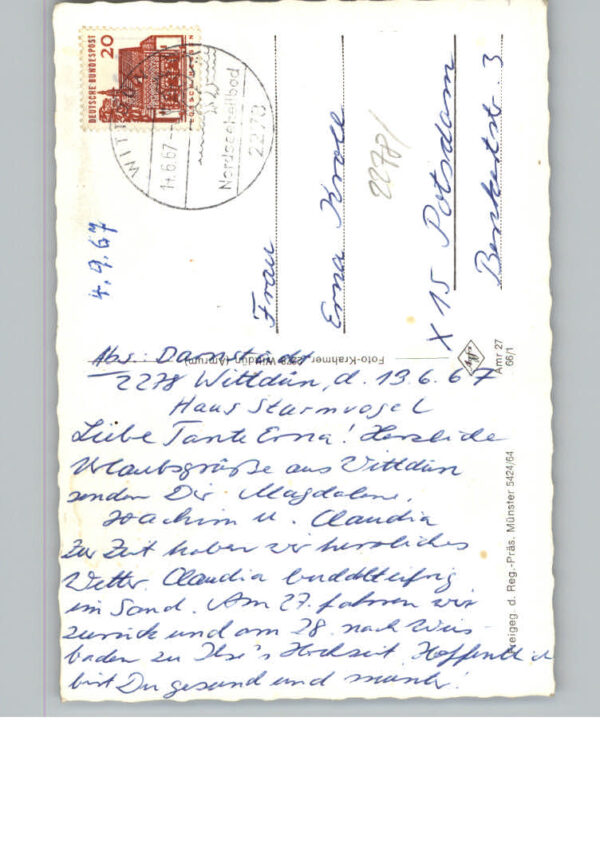 DEUTSCHE BUNDESPOST
20
14.6.67
Nordseeheilbad
2278
4.9.67
Frau
Erna Kroll
2278/
X 15 Potsdam
3
Abs: Darmstädter
2278 Wittdün, d. 13.6.67
Haus Sturmvogel
Liebe Tante Erna! Herzliche
Urlaubsgrüße aus Wittdün
senden Dir Magdalene,
Joachim u. Claudia
Zur Zeit haben wir herrliches
Wetter. Claudia buddelt eifrig
im Sand. Am 27. fahren wir
zurück und am 28. nach Wies-
baden zu Ilse's Hochzeit. Hoffentlich
bist Du gesund und munter!
Foto-Krahmer 2278 Wittdün (Amrum)
Agfa
Amr 27
66/1
Freigeg. d. Reg.-Präs. Münster 5424/64